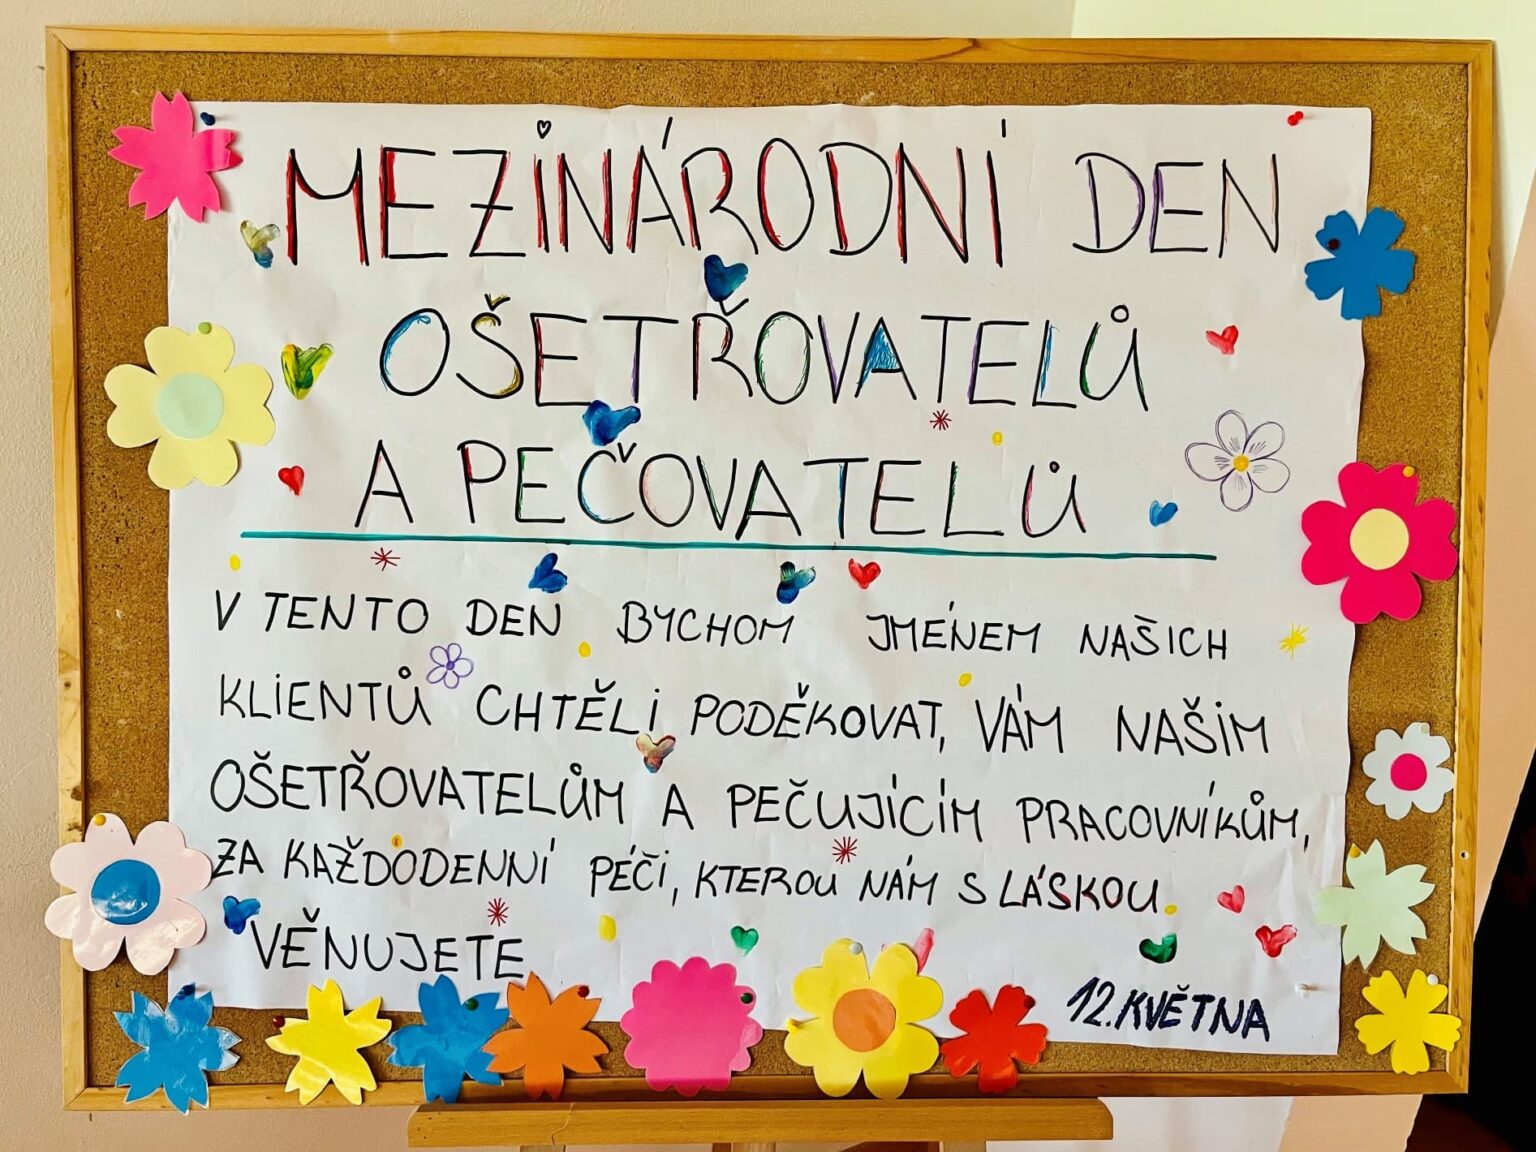 MEZINÁRODNÍ DEN
OŠETŘOVATELŮ
A PEČOVATELŮ
V TENTO DEN BYCHOM JMÉNEM NAŠICH
KLIENTŮ CHTĚLI PODĚKOVAT, VÁM NAŠIM
OŠETŘOVATELŮM A PEČUJÍCÍM PRACOVNÍKŮM,
ZA KAŽDODENNÍ PÉČI, KTEROU NÁM S LÁSKOU
VĚNUJETE
12. KVĚTNA